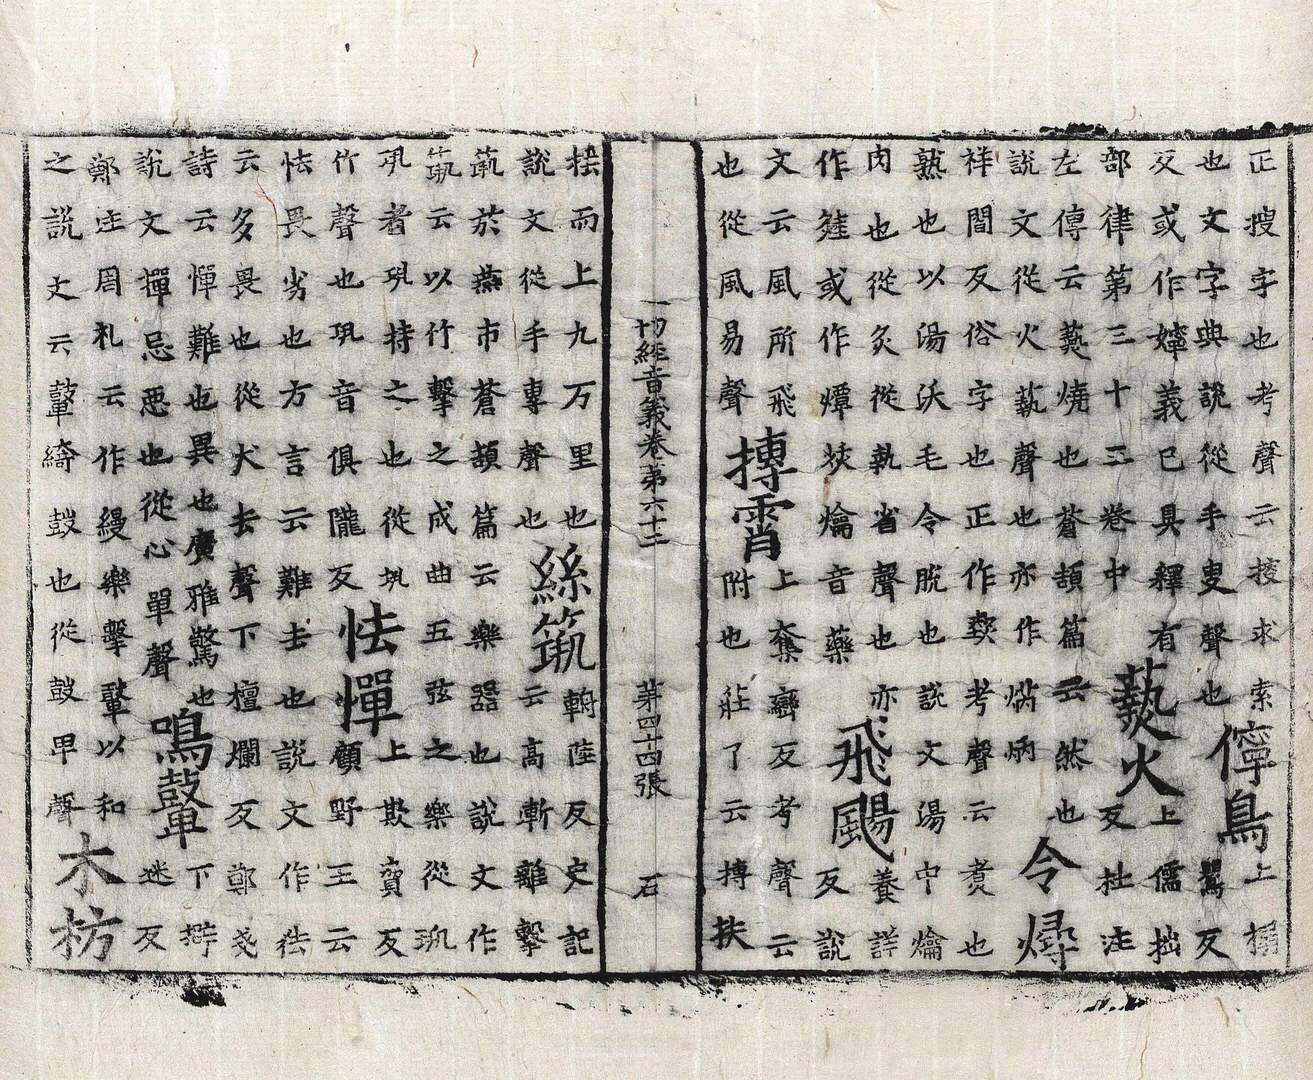 正搜字也考聲云搜求索儜鳥上搦
也文字典說從手叟聲也鸎反
反或作嬣義已具釋有爇火上儒拙
部律第三十三卷中反拙注
左傳云爇燒也蒼頡篇云然也
說文從火蓺聲也亦作焫炳令燖
祥間反俗字也正作㷟考聲云煑也
熟也以湯沃毛令脫也說文湯中爚
肉也從炙從執省聲也亦飛颺養詳
作𤈩或作燂㶼爚音藥反說
文云風所飛上奞彎反考聲云
也從風昜聲摶霄附也莊了云摶扶
一切經音義卷第六十二 第四十四張 石
搖而上九万里也絲筑輈陸反史記
說文從手專聲也云高漸離擊
筑於燕市蒼頡篇云樂器也說文作
筑云以竹擊之成曲五弦之樂從巩
巩者巩持之也從巩上欺賔反
竹聲也巩音俱隴反怯憚顧野王云
怯畏劣也方言云難去也說文作㹤
云多畏也從犬去聲下檀爛反鄭箋
詩云憚難也異也廣雅驚也下
說文憚忌惡也從心單聲鳴鼙迷反
鄭注周礼云作縵樂擊鼙以和
之說文云鼙鼓也從鼓甲聲木枋